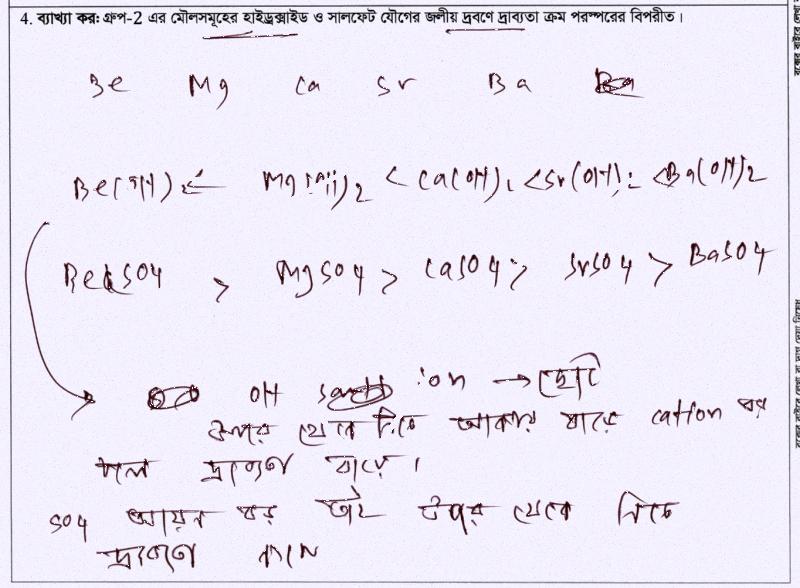 4. ব্যাখ্যা কর: গ্রুপ-2 এর মৌলসমূহের হাইড্রক্সাইড ও সালফেট যৌগের জলীয় দ্রবণে দ্রাব্যতা ক্রম পরস্পরের বিপরীত।
Be Mg Ca Sr Ba
Be(OH)2 < Mg(OH)2 < Ca(OH)2 < Sr(OH)2 < Ba(OH)2
BeSO4 > MgSO4 > CaSO4 > SrSO4 > BaSO4
OH ion → ছোট
উপর থেকে নিচে আকার বাড়ে cation এর
ফলে দ্রাব্যতা বাড়ে।
SO4 আয়ন বড় তাই উপর থেকে নিচে
দ্রাব্যতা কমে